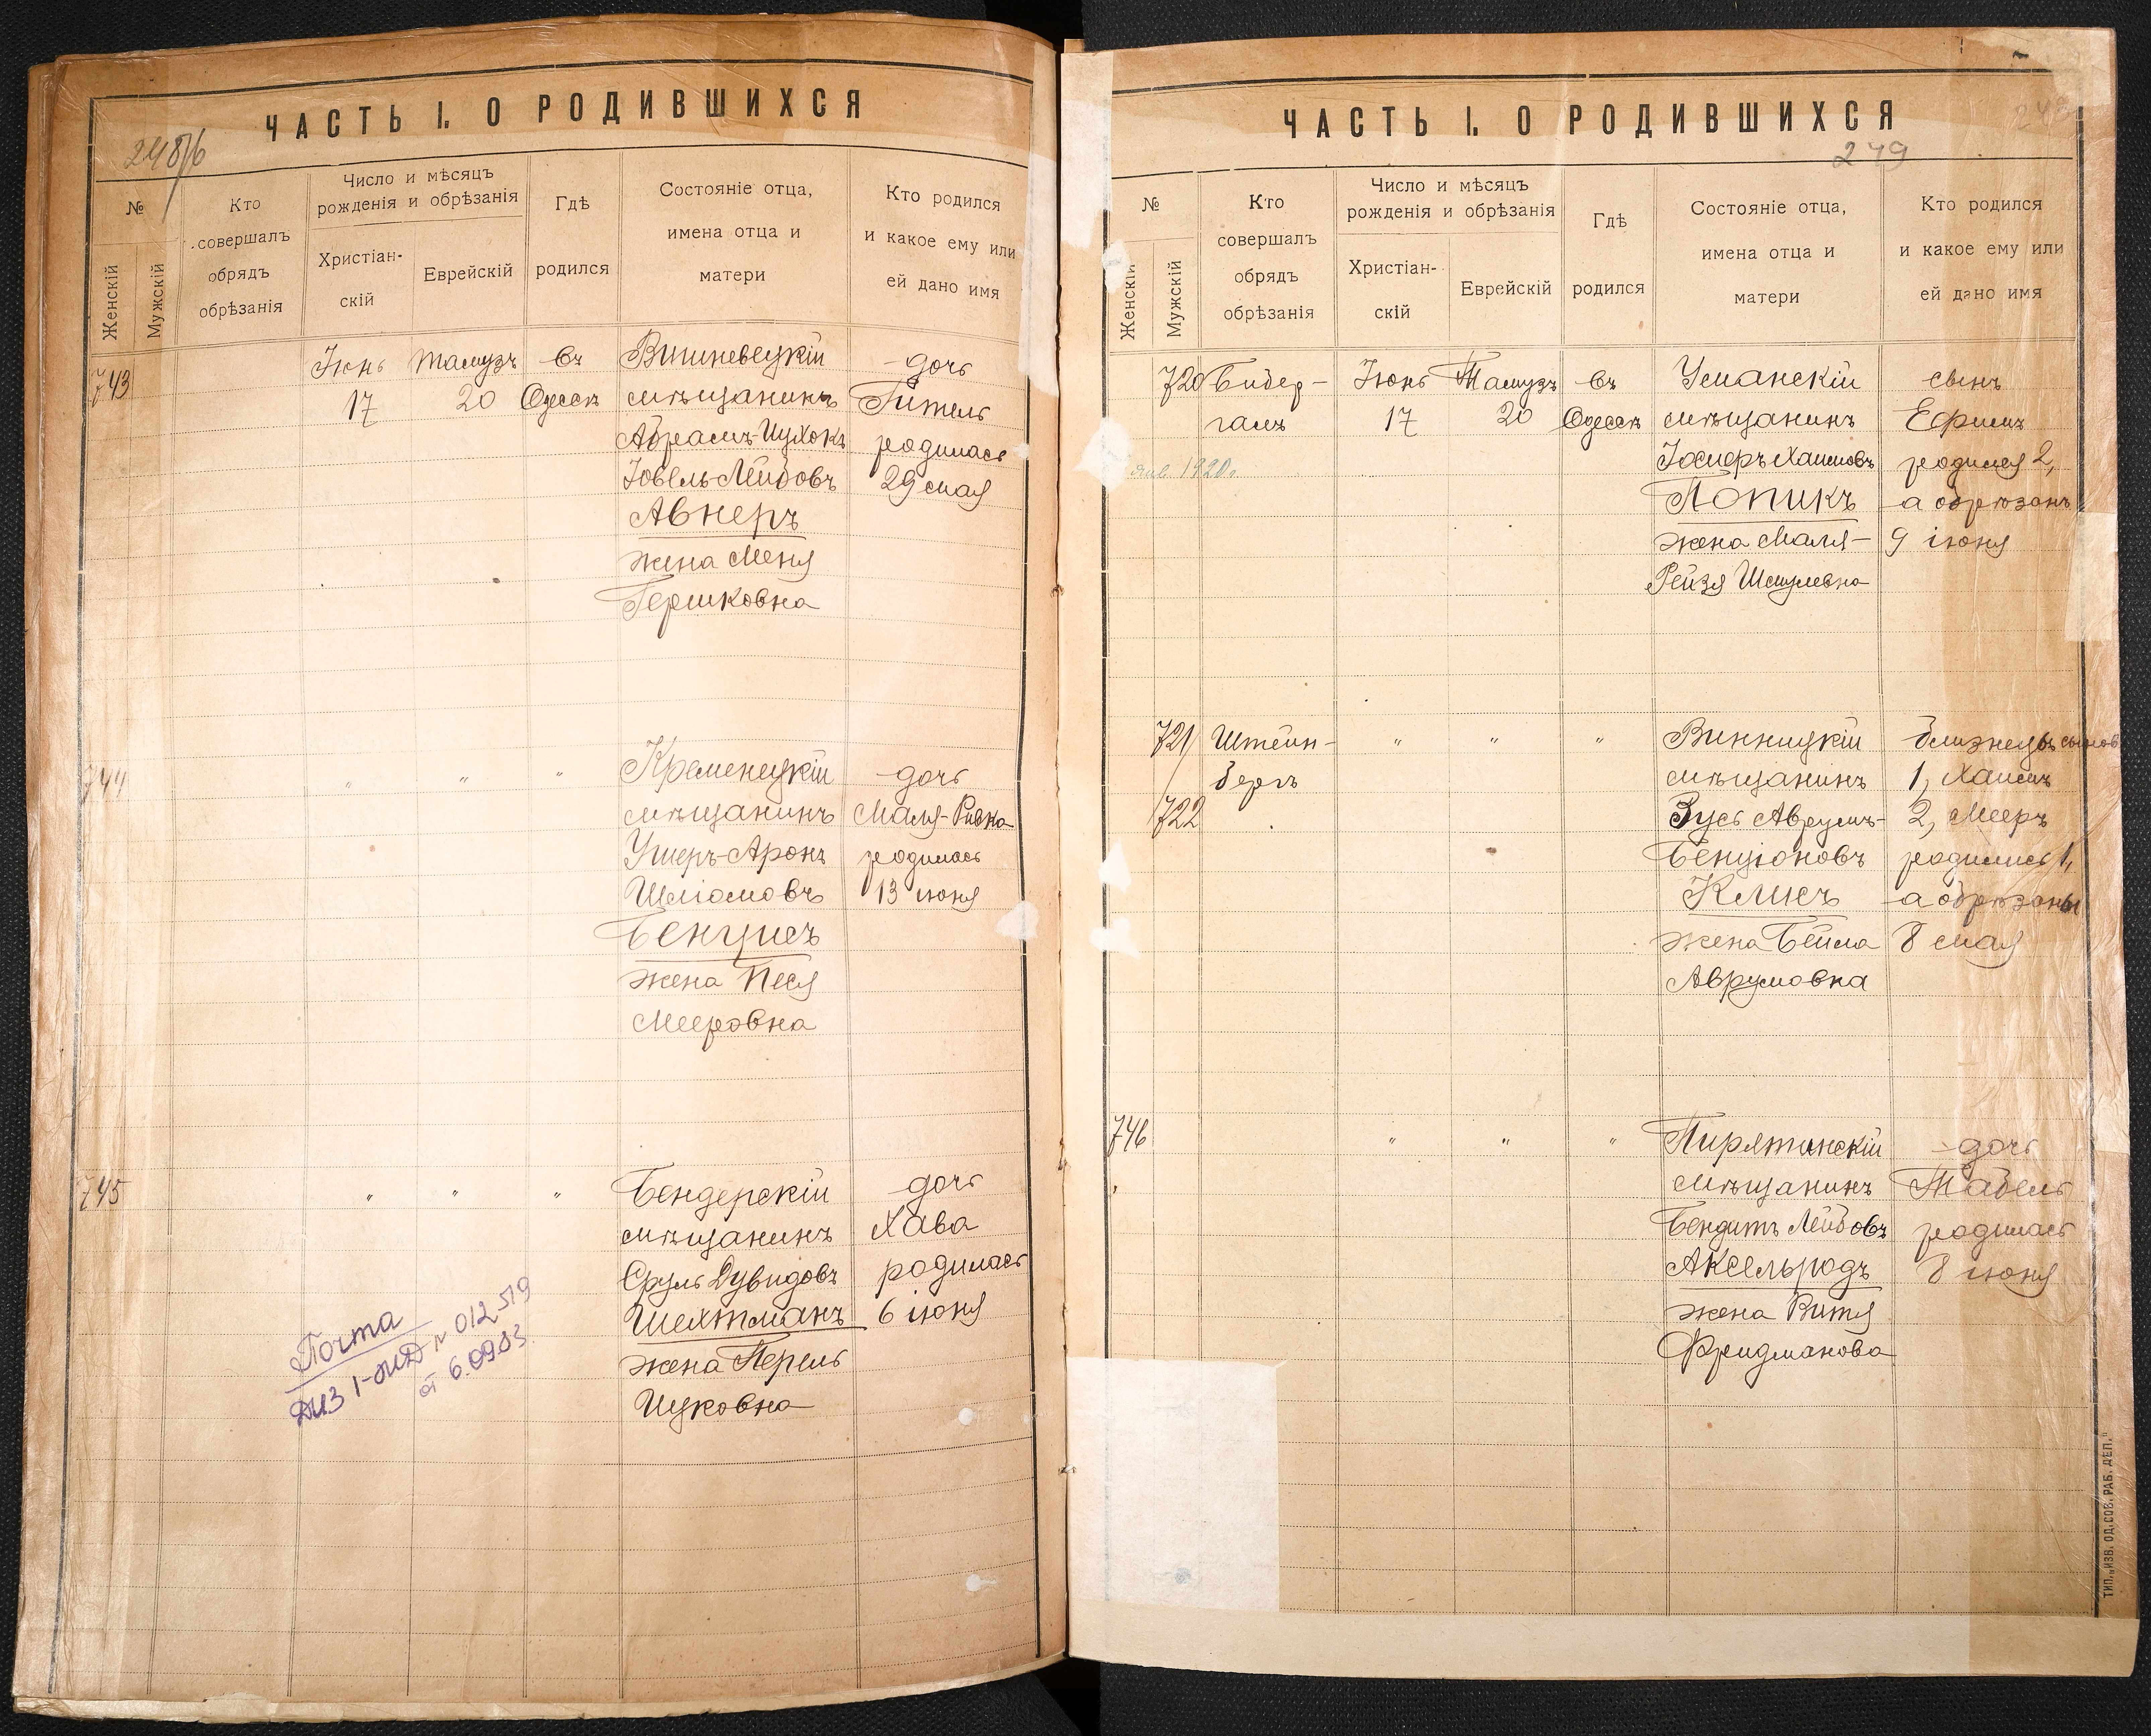 ЧАСТЬ I. О РОДИВШИХСЯ
248/б
№
Женскій
Мужскій
Кто
совершалъ
обрядъ
обрѣзанія
Число и мѣсяцъ
рожденія и обрѣзанія
Христіан-
скій
Еврейскій
Гдѣ
родился
Состояніе отца,
имена отца и
матери
Кто родился
и какое ему или
ей дано имя
743
Іюнь
17
Тамузъ
20
въ
Одессѣ
Вишневецкій
мѣщанинъ
Абрамъ-Ицхокъ
Іовель-Лейбовъ
Авнеръ
жена Меня
Гершковна
дочь
Гитель
родилась
29 мая
744
" " "
Кременецкій
мѣщанинъ
Ушеръ-Аронъ
Шліомовъ
Бенцисъ
жена Песя
Мееровна
дочь
Маля-Ривка
родилась
13 іюня
745
" " "
Бендерскій
мѣщанинъ
Сруль Дувидовъ
Шехтманъ
жена Перель
Ицковна
дочь
Хава
родилась
6 іюня
Почта
№ 012519
от 6.09.03
ЧАСТЬ I. О РОДИВШИХСЯ
249
№
Женскій
Мужскій
Кто
совершалъ
обрядъ
обрѣзанія
Число и мѣсяцъ
рожденія и обрѣзанія
Христіан-
скій
Еврейскій
Гдѣ
родился
Состояніе отца,
имена отца и
матери
Кто родился
и какое ему или
ей дано имя
720
Бидер-
галъ
Іюнь
17
Тамузъ
20
въ
Одессѣ
Уманскій
мѣщанинъ
Хаимовъ
Попикъ
жена Маля-
Рейзя Шмулевна
сынъ
Ефимъ
родился 2,
а обрѣзанъ
9 іюня
1920г.
721
722
Штейн-
бергъ
" " "
Винницкій
мѣщанинъ
Зусь Аврумъ-
Бенціоновъ
Клисъ
жена Бейла
Аврумовна
близнецы сынов
1, Хаимъ
2, Мееръ
родились 1,
а обрѣзаны
8 мая
746
" " "
Пирятинскій
мѣщанинъ
Бендитъ Лейбовъ
Аксельродъ
жена Витя
Фридманова
дочь
Табель
родилась
8 іюня
ТИП. „ИЗВ. ОД. СОВ. РАБ. ДЕП."